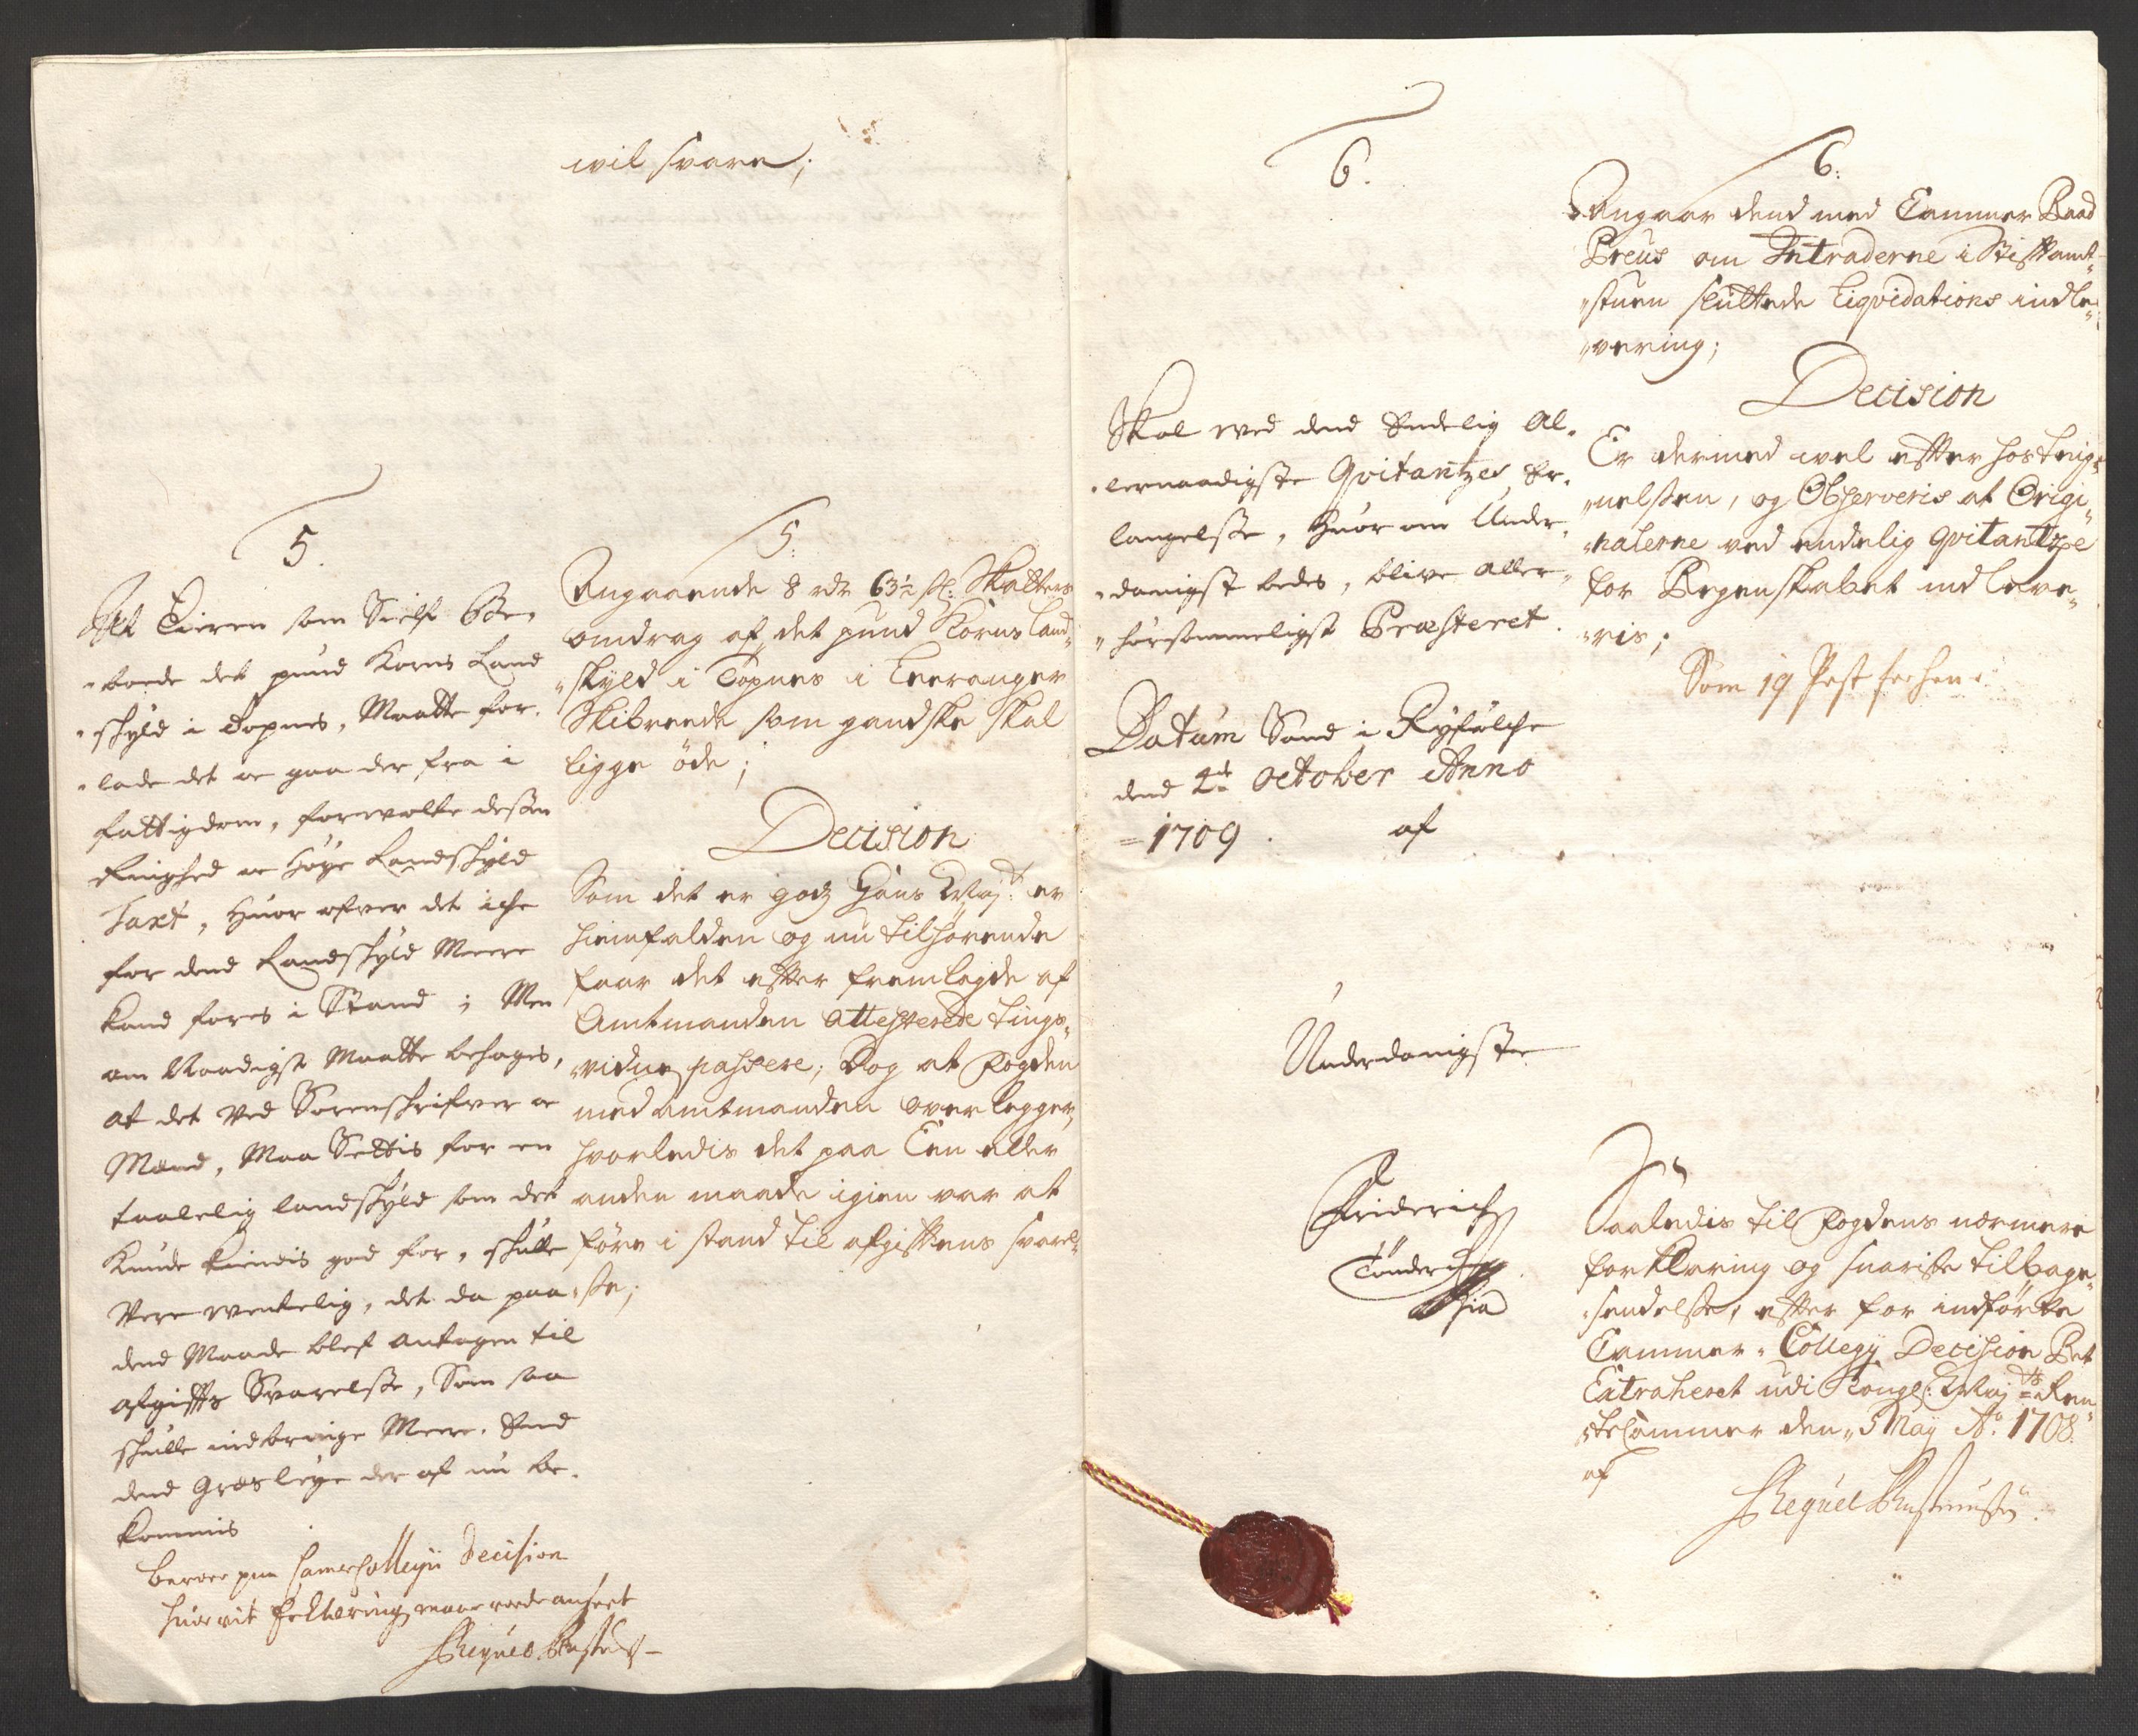 wil svare;
5.
At Eieren som Sielf Böe,,
,,boede det pund Korns Land
,,skyld i Topnes, Maatte for,,
,,lade det oc gaa der fra i
fattigdom, forvolte dessen
Ringhed oc Höye Landskyld
Taxt, Huor ofver det iche
for dend Landskyld Meere
kand fores i Stand; Men
om Naadigst Maatte behages,
at det Ved Sorenskrifver oc
Mænd, Maa Settis for en
taalelig landskyld som det
kunde kiendis god for, skulle
Vere ventelig, det da paa
dend Maade blef antagen til
afgiffts Svarelsse, Som saa
skulle indbringe Mere. End
dend Græsleye der af nu be,,
kommis
beroer paa Camer Collegii Decision
huor vit forklaring maa vorde anseet
5:
Angaaende 8 rdr 63½ sk: Skatters
omdrag af det pund Korns Land,,
,,skyld i Topnes i Leeranger
Skibreede som gandske skal
ligge öde;
Decision
Som det er godz Hans Mayt: er
hiemfalden og nu tilhörende
faar det efter fremlagde af
Amtmanden attesterede tings,,
,,vidne passere; Dog at Fogden
med amtmanden overlegger,
hvorledis det paa Een eller
anden maade igien var at
före i stand til afgifftens svarel,,
,,se;
6.
Skal ved dend Endelig Al,,
,,lernaadigste Qvitantzes Er,,
langelsse, Huor om Under,,
,,danigst bedes, blive aller,,
,,hörsommeligst Præsteret.
Datum Sand i Ryfylche
dend 2de October Anno
=1709. af
Underdanigste
Friderich
Tönder
6:
Angaar dend med Cammer Raad
Preus om Intraderne i Stiftamt,,
,,stuen sluttede Liqvidations indle,,
,,vering;
Decision
Er dermed vel efter hosteig,,
,,nelsen, og Observeris at Origi,,
,,nalerne ved endelig qvitantze
for Regenskabet indleve,,
,,ris;
Som 19 Post
Saaledis til Fogdens nærmere
forklaring og snariste tilbage,,
,,sendelse, efter for indförte
Cammer-Collegij Decision Bet
Extraheret udi Kongl: Mayts Ren,,
,,teCammer den 5 May Ao. 1708.
af